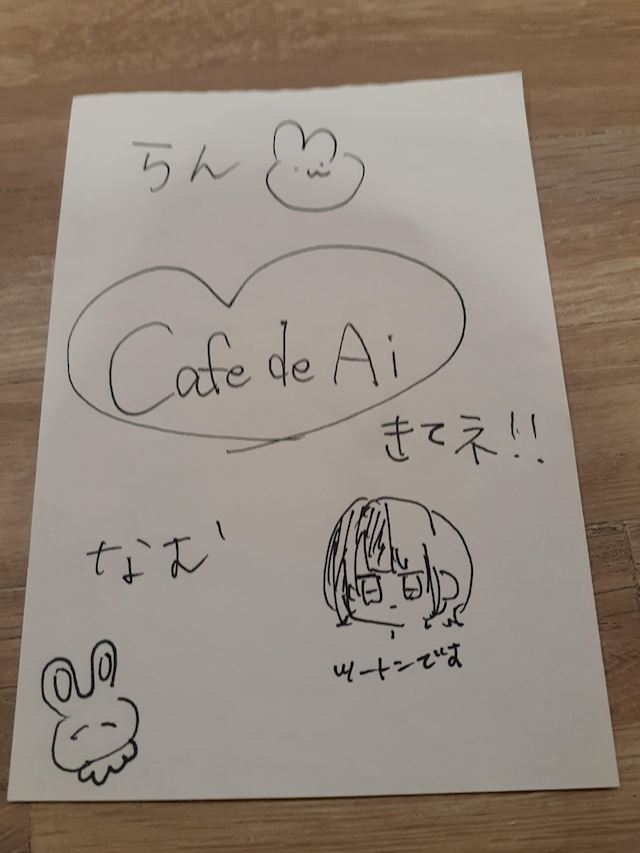 らん
Cafe de Ai
きてネ!!
なむ
ツートンです